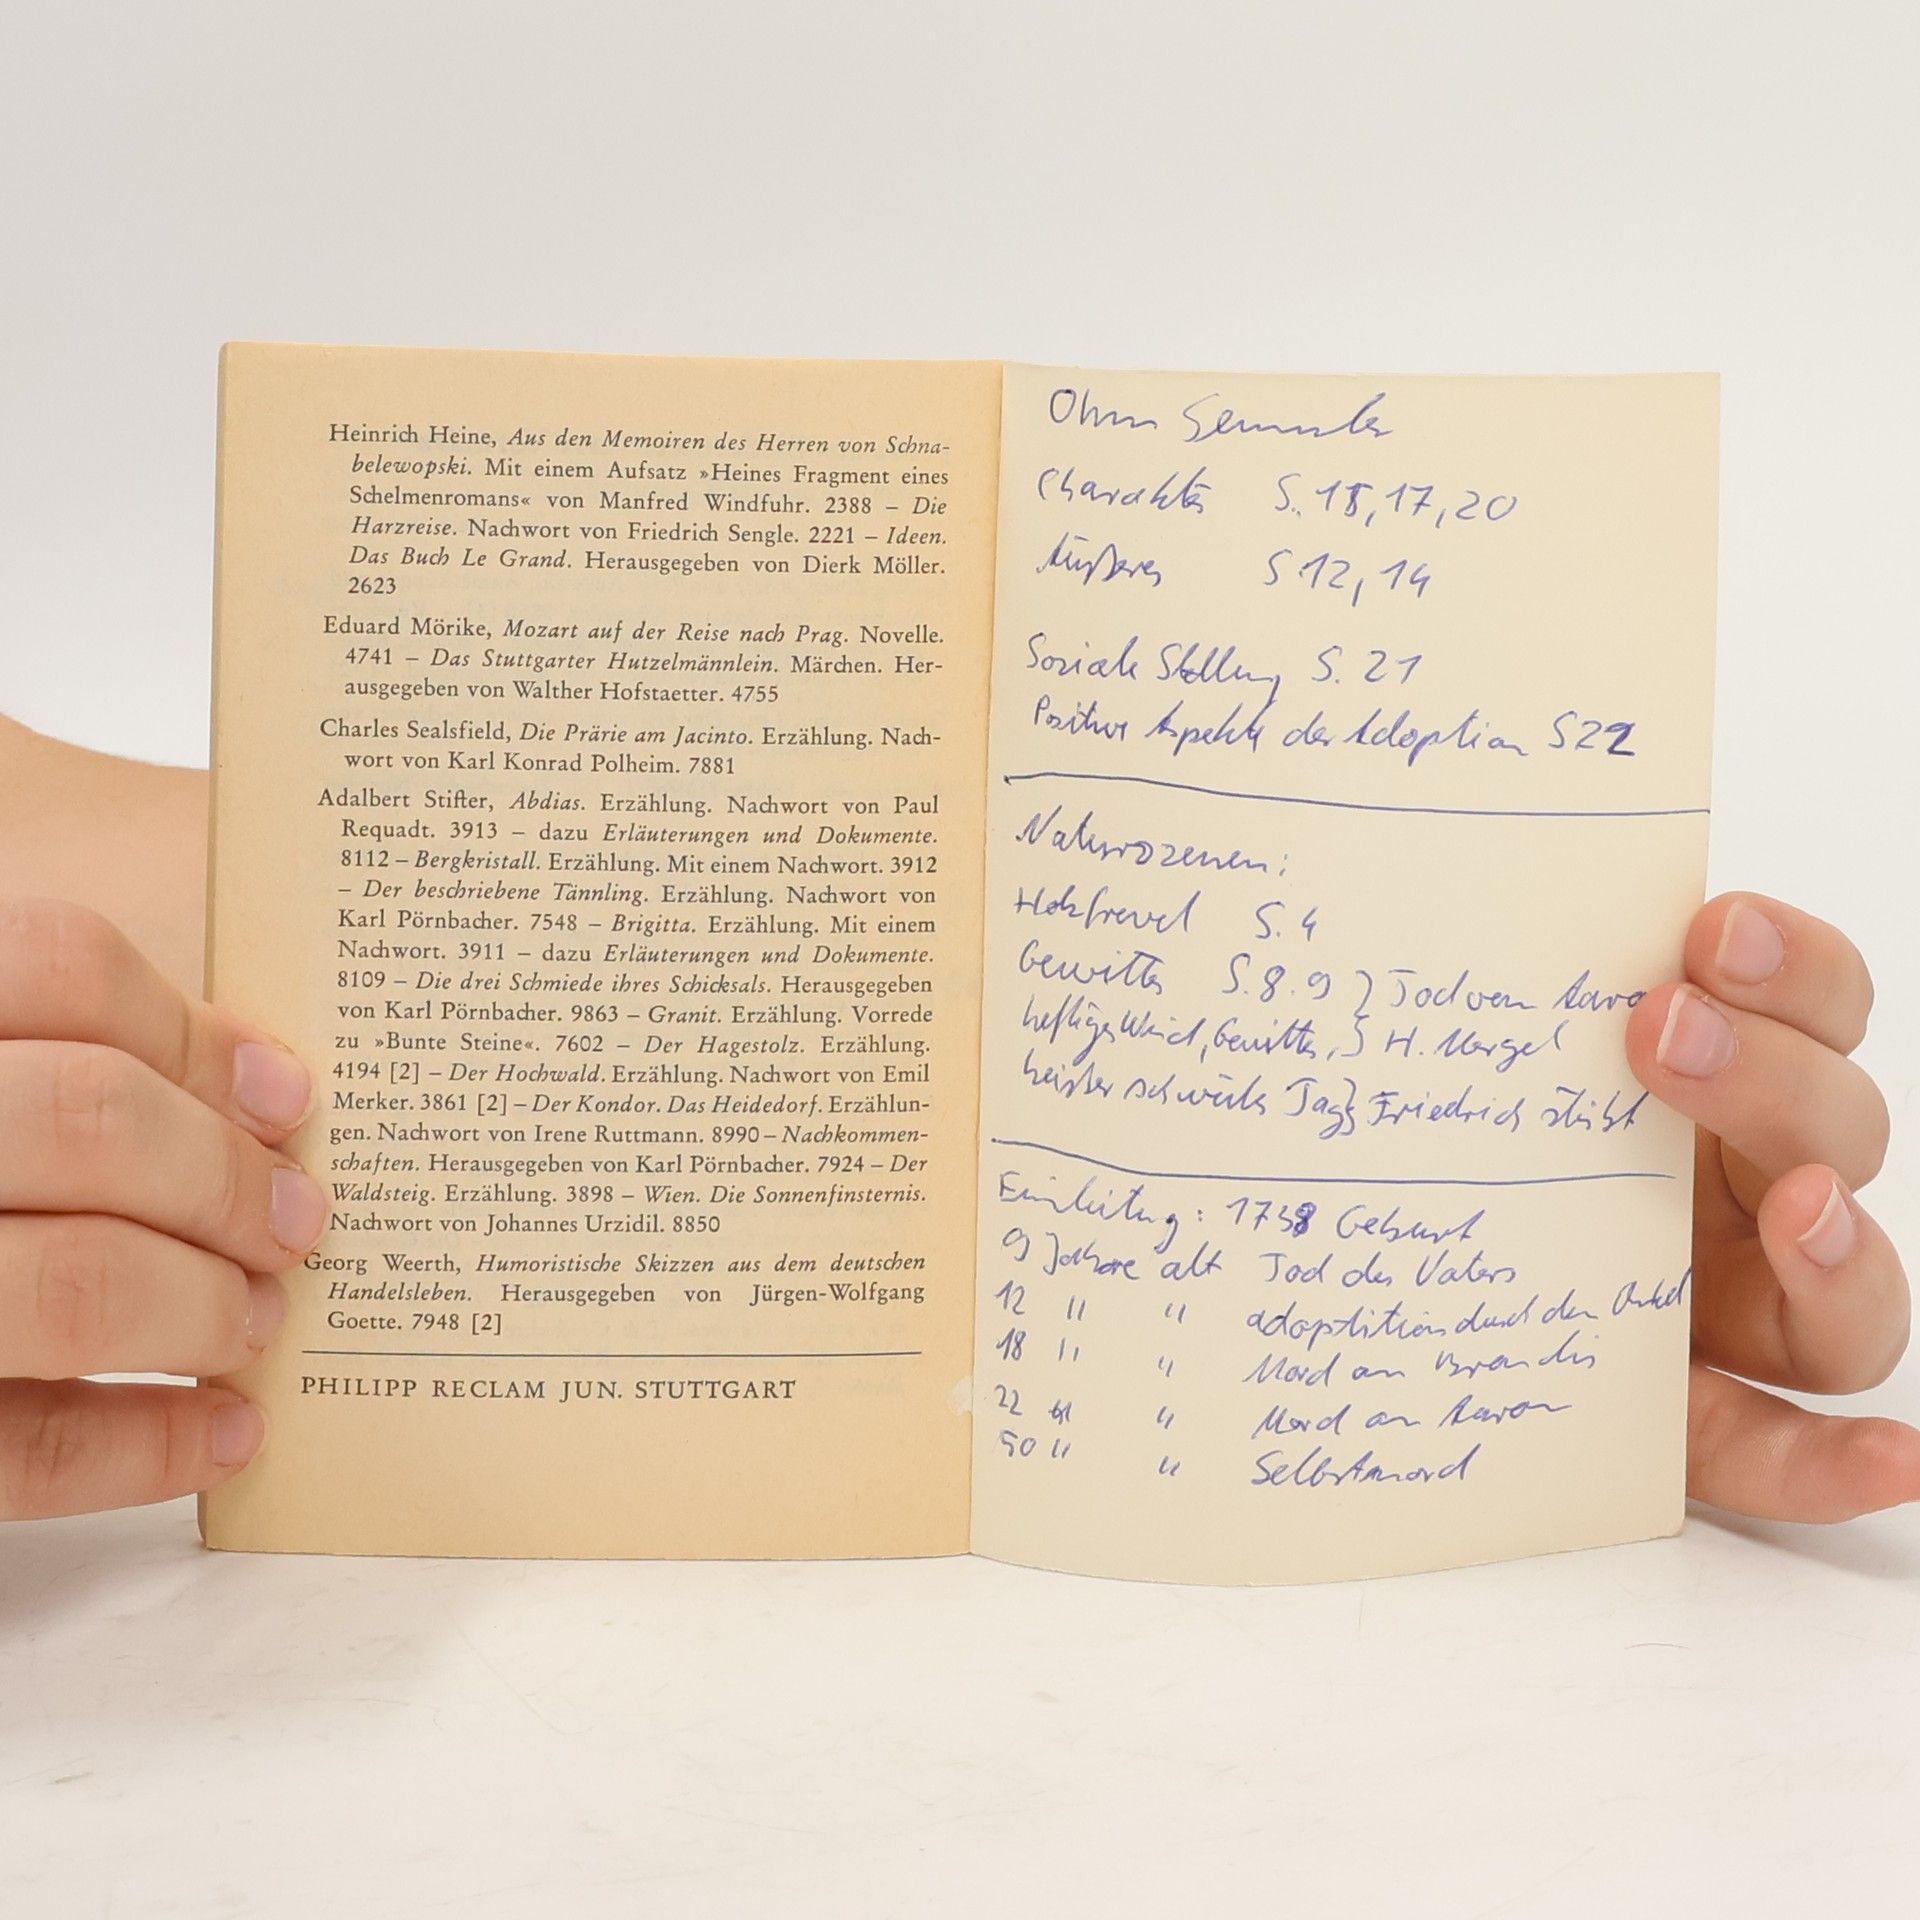 Heinrich Heine, Aus den Memoiren des Herren von Schna-
belewopski. Mit einem Aufsatz »Heines Fragment eines
Schelmenromans« von Manfred Windfuhr. 2388 – Die
Harzreise. Nachwort von Friedrich Sengle. 2221 – Ideen.
Das Buch Le Grand. Herausgegeben von Dierk Möller.
2623
Eduard Mörike, Mozart auf der Reise nach Prag. Novelle.
4741 – Das Stuttgarter Hutzelmännlein. Märchen. Her-
ausgegeben von Walther Hofstaetter. 4755
Charles Sealsfield, Die Prärie am Jacinto. Erzählung. Nach-
wort von Karl Konrad Polheim. 7881
Adalbert Stifter, Abdias. Erzählung. Nachwort von Paul
Requadt. 3913 – dazu Erläuterungen und Dokumente.
8112 – Bergkristall. Erzählung. Mit einem Nachwort. 3912
– Der beschriebene Tännling. Erzählung. Nachwort von
Karl Pörnbacher. 7548 – Brigitta. Erzählung. Mit einem
Nachwort. 3911 – dazu Erläuterungen und Dokumente.
8109 – Die drei Schmiede ihres Schicksals. Herausgegeben
von Karl Pörnbacher. 9863 – Granit. Erzählung. Vorrede
zu »Bunte Steine«. 7602 – Der Hagestolz. Erzählung.
4194 [2] – Der Hochwald. Erzählung. Nachwort von Emil
Merker. 3861 [2] – Der Kondor. Das Heidedorf. Erzählun-
gen. Nachwort von Irene Ruttmann. 8990 – Nachkommen-
schaften. Herausgegeben von Karl Pörnbacher. 7924 – Der
Waldsteig. Erzählung. 3898 – Wien. Die Sonnenfinsternis.
Nachwort von Johannes Urzidil. 8850
Georg Weerth, Humoristische Skizzen aus dem deutschen
Handelsleben. Herausgegeben von Jürgen-Wolfgang
Goette. 7948 [2]
PHILIPP RECLAM JUN. STUTTGART
Ohm Semmler
Charakter S. 15, 17, 20
Äußeres S 12, 14
Soziale Stellung S. 21
Positive Aspekte der Adoption S 22
Naturszenen:
Holzfrevel S. 4
Gewitter S. 8. 9 } Tod von Aaro
heftiger Wind, Gewitter, } H. Mergel
heißer schwüler Tag } Friedrich stirbt
Einleitung: 1738 Geburt
9 Jahre alt Tod des Vaters
12 " " adoptition durch den Onkel
18 " " Mord an Brandis
22 " " Mord an Aaron
50 " " Selbstmord